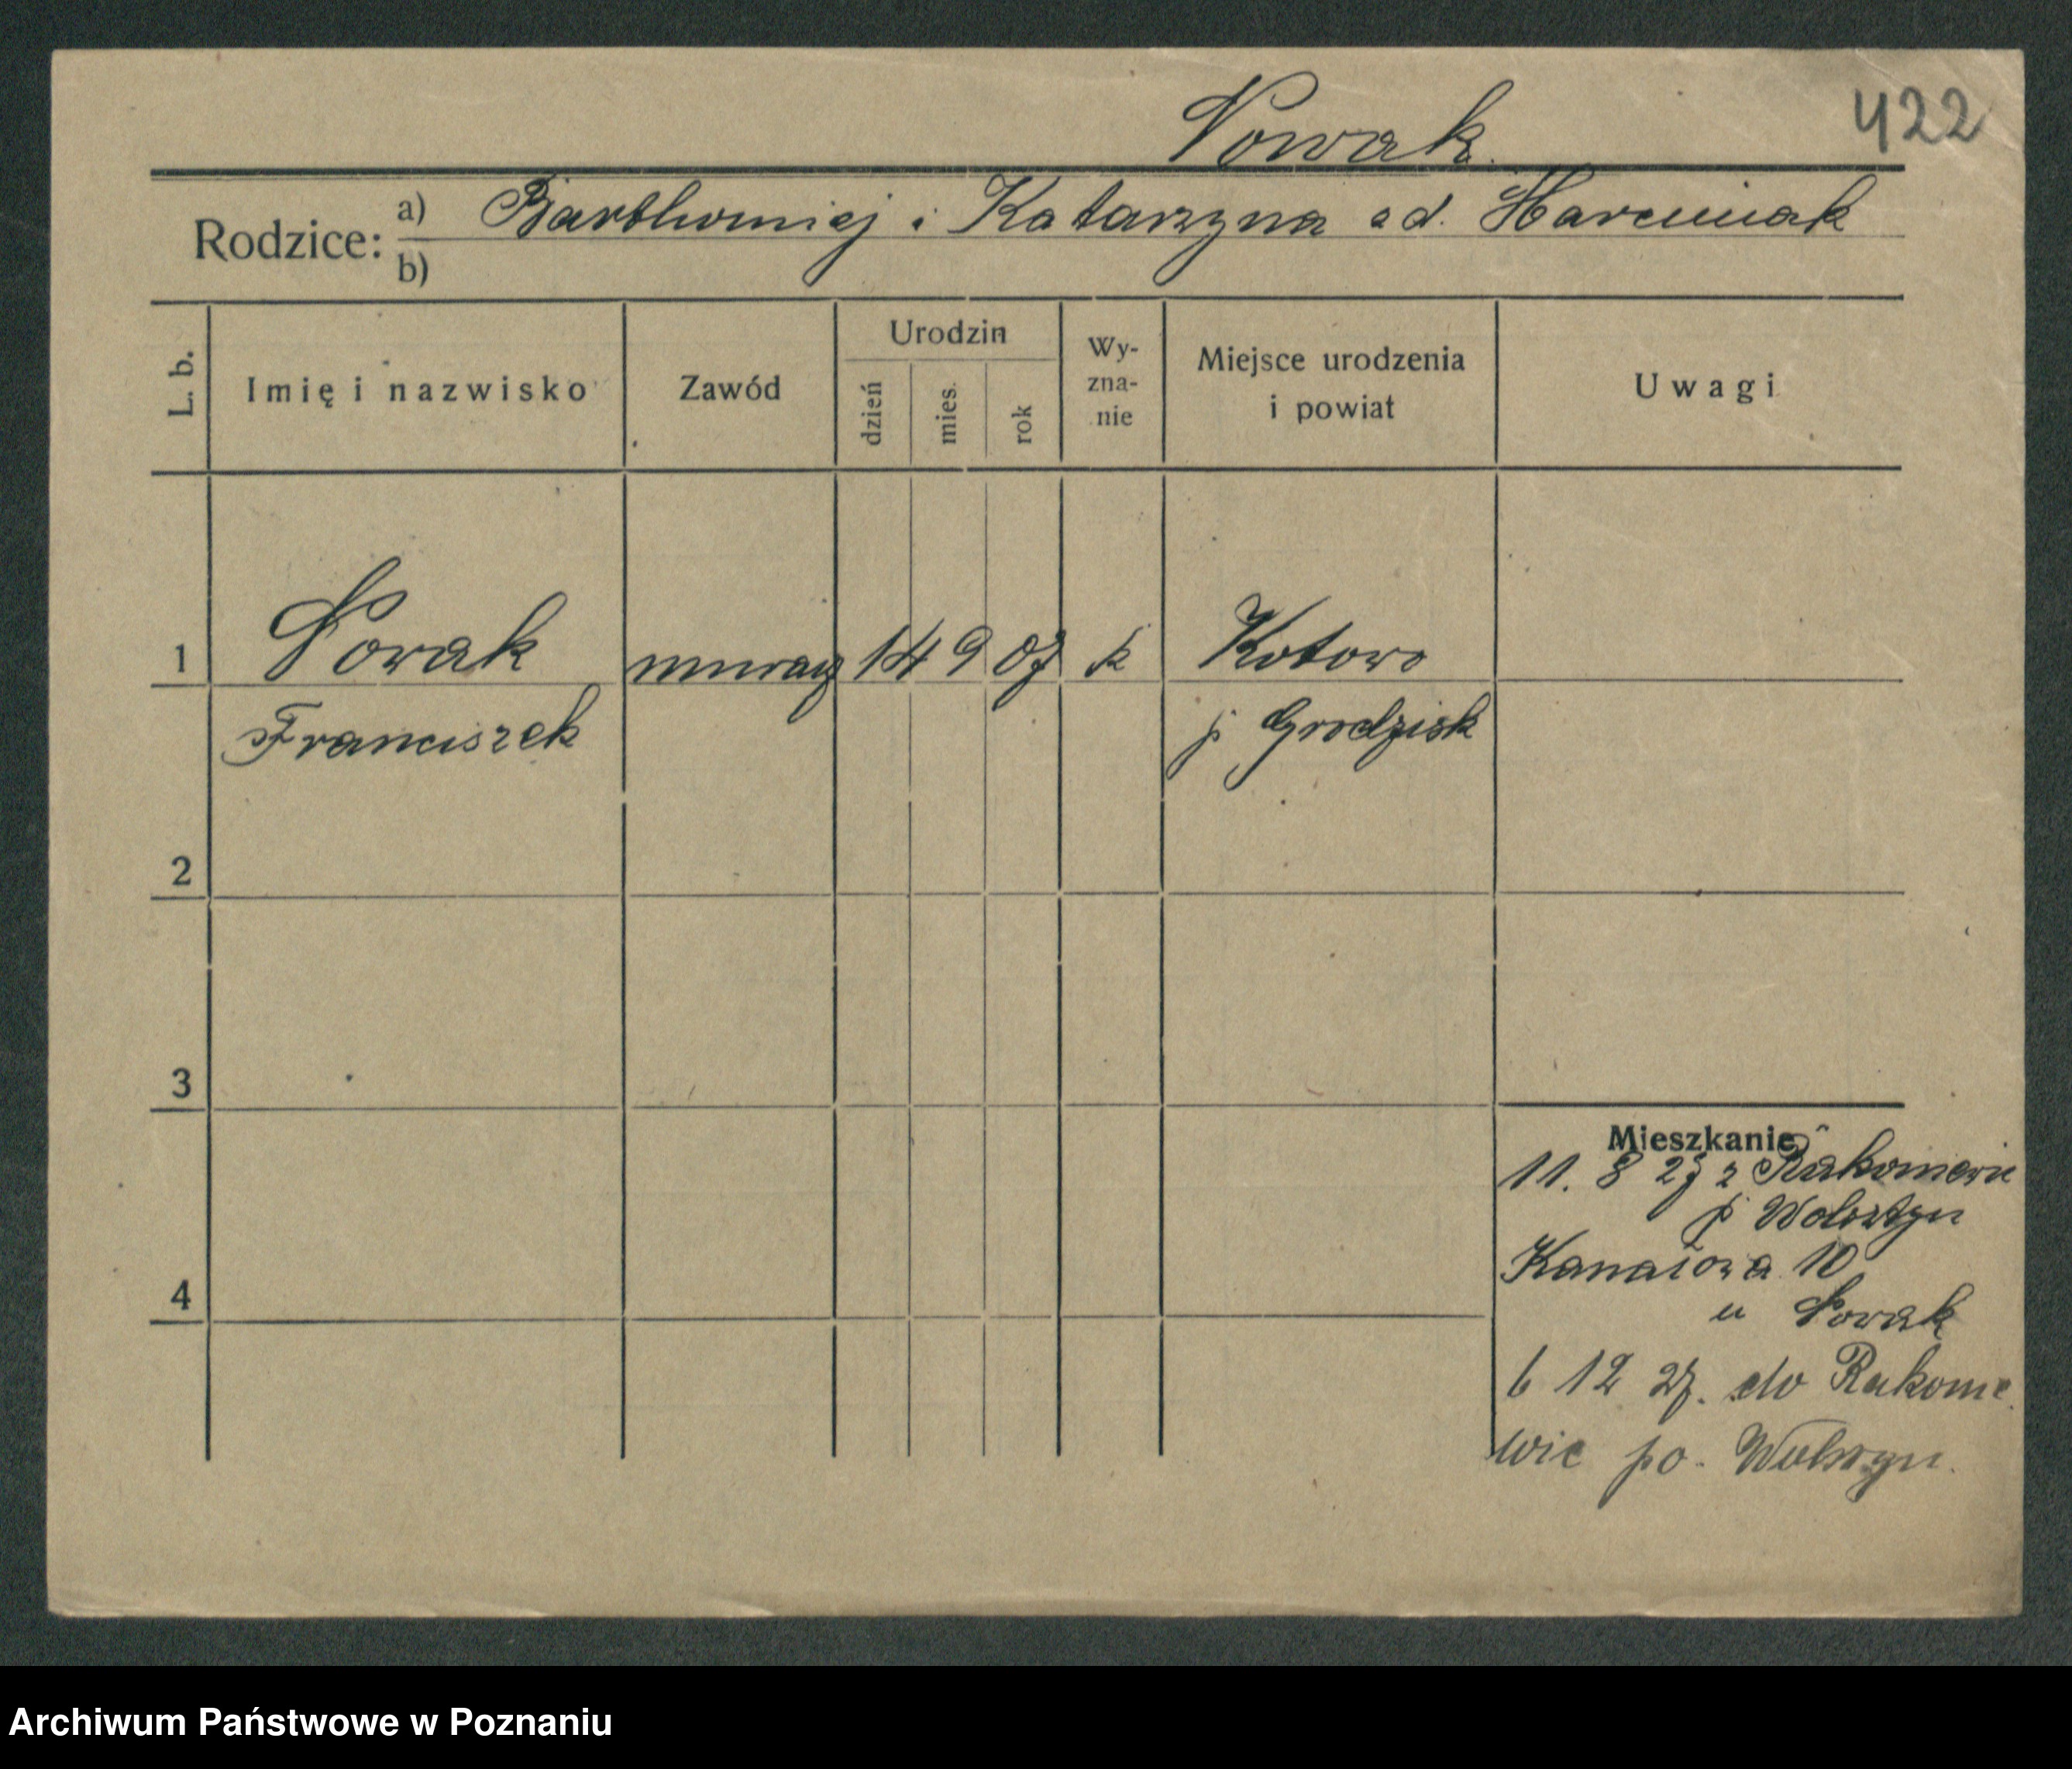 Nowak
422
Rodzice: a) Barthomiej i Katarzyna ad. Marciniak
b)
L. b. Imię i nazwisko Zawód Urodzin dzień mies. rok Wy-zna-nie Miejsce urodzenia i powiat Uwagi
1 Nowak murarz 14 9 07 k Kotowo
Franciszek p Grodzisk
2
3
Mieszkanie
11. 8 27 z Rakoniewic
p Wolsztyn
Kanałowa 10
4
u Nowak
6 12 27. do Rakonie
wic po. Wolsztyn.
Archiwum Państwowe w Poznaniu